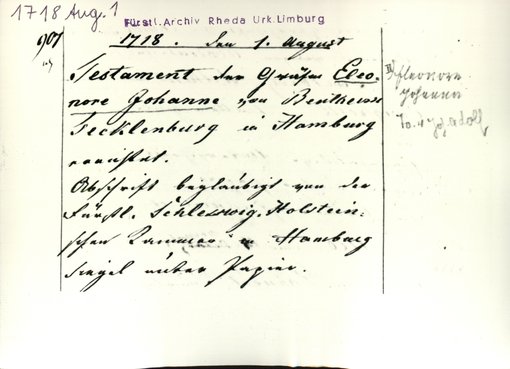 1718 Aug. 1
Fürstl. Archiv Rheda Urk. Limburg
907
1718. den 1. August
Testament der Gräfin Eleo-
nore Johanne von Bentheim
Tecklenburg in Hamburg
errichtet.
Abschrift beglaubigt von der
Fürstl. Schleswig-Holstein-
schen Kammer in Hamburg
Siegel unter Papier.
Eleonore
Johanna